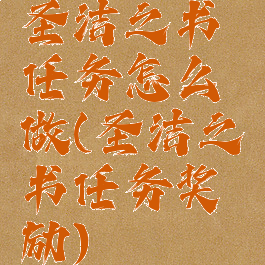 圣洁之书
任务怎么
做(圣洁之
书任务奖
励)